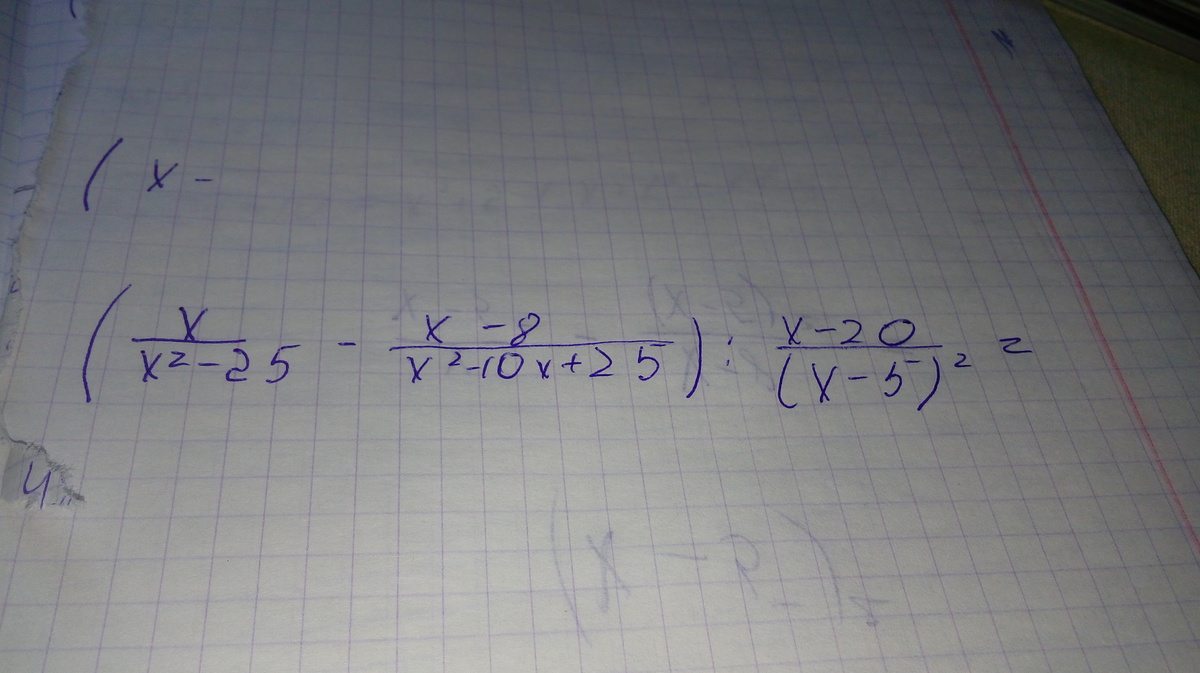 ( x -
( x / x² - 25 - x - 8 / x² - 10x + 25 ) : x - 20 / (x - 5)² =
4